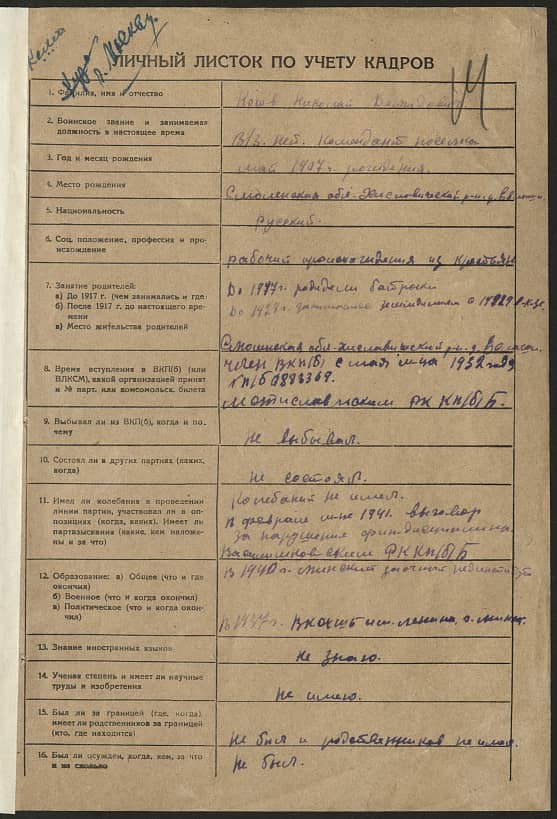 г. Москву.
ЛИЧНЫЙ ЛИСТОК ПО УЧЕТУ КАДРОВ
1. Фамилия, имя и отчество
Николай
2. Воинское звание и занимаемая
должность в настоящее время
Комендант поселка
3. Год и месяц рождения
май 1907 г. рождения.
4. Место рождения
Смоленская обл. Хиславический р-н. д.
5. Национальность
Русский.
6. Соц. положение, профессия и про-
исхождение
рабочий происхождения из крестьян
7. Занятие родителей:
а) До 1917 г. (чем занимались и где
б) После 1917 г. до настоящего вре-
мени
в) Место жительства родителей
До 1917г. родители батраки
До 1929г.
Смоленская обл. Хиславический р-н. д.
8. Время вступления в ВКП(б) (или
ВЛКСМ), какой организацией принят
и № парт. или комсомольск. билета
член ВКП(б) с мая м-ца 1932 года
п/б
Мстиславским РК КП/б/Б.
9. Выбывал ли из ВКП(б), когда и по-
чему
Не выбывал.
10. Состоял ли в других партиях (каких,
когда)
Не состоял.
11. Имел ли колебания в проведении
линии партии, участвовал ли в оп-
позициях (когда, каких). Имеет ли
партвзыскания (какие, кем наложе-
ны и за что)
Колебаний не имел.
В феврале м-це 1941. выговор
за нарушение фин-дисциплины
РК КП/б/Б
12. Образование: а) Общее (что и где
окончил)
б) Военное (что и когда окончил)
в) Политическое (что и когда окон-
чил)
В 1940г. Минский заочный
В 1937г. им. Ленина, г. Минск.
13. Знание иностранных языков
Не знаю.
14. Ученая степень и имеет ли научные
труды и изобретения
Не имею.
15. Был ли за границей (где, когда),
имеет ли родственников за границей
(кто, где находится)
Не был и родственников не имею.
16. Был ли осужден, когда, кем, за что
и на сколько
Не был.